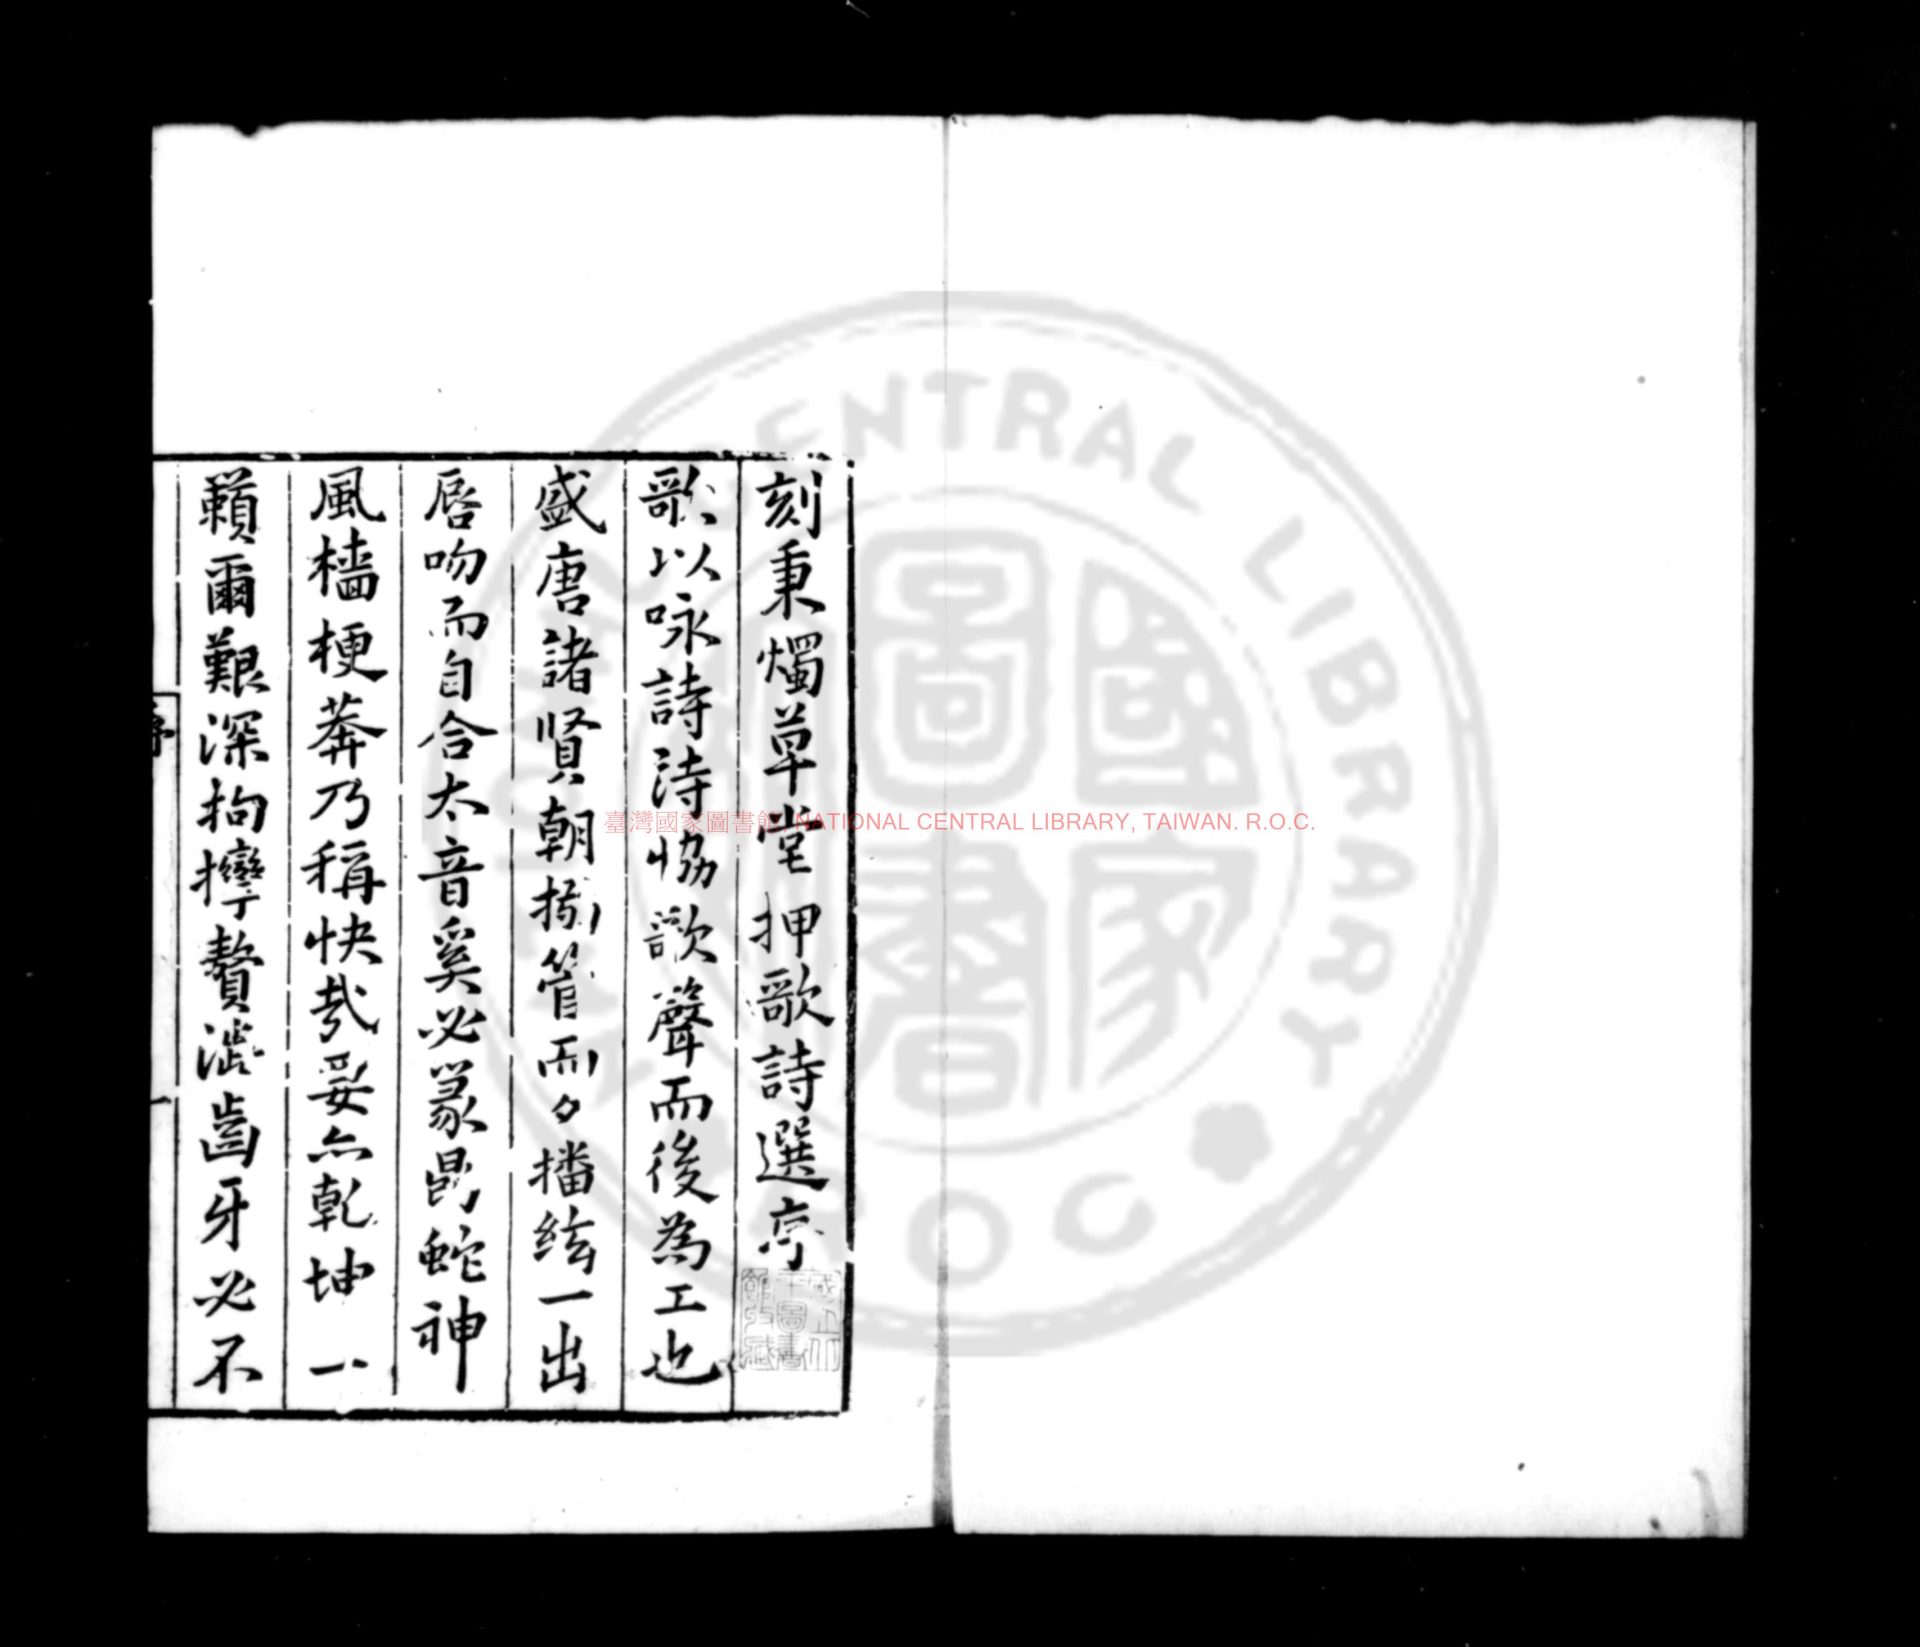 刻秉燭草堂押歌詩選序
歌以咏詩詩協歌聲而後為工也
盛唐諸賢朝搦管而夕播絃一出
唇吻而自合太音奚必篆鼎蛇神
風檣梗莽乃稱快哉妥亦乾坤一
籟爾艱深拘攣聱澁齒牙必不
序
一
臺灣國家圖書館, NATIONAL CENTRAL LIBRARY, TAIWAN. R.O.C.
CENTRAL LIBRARY
ROC
國家圖書